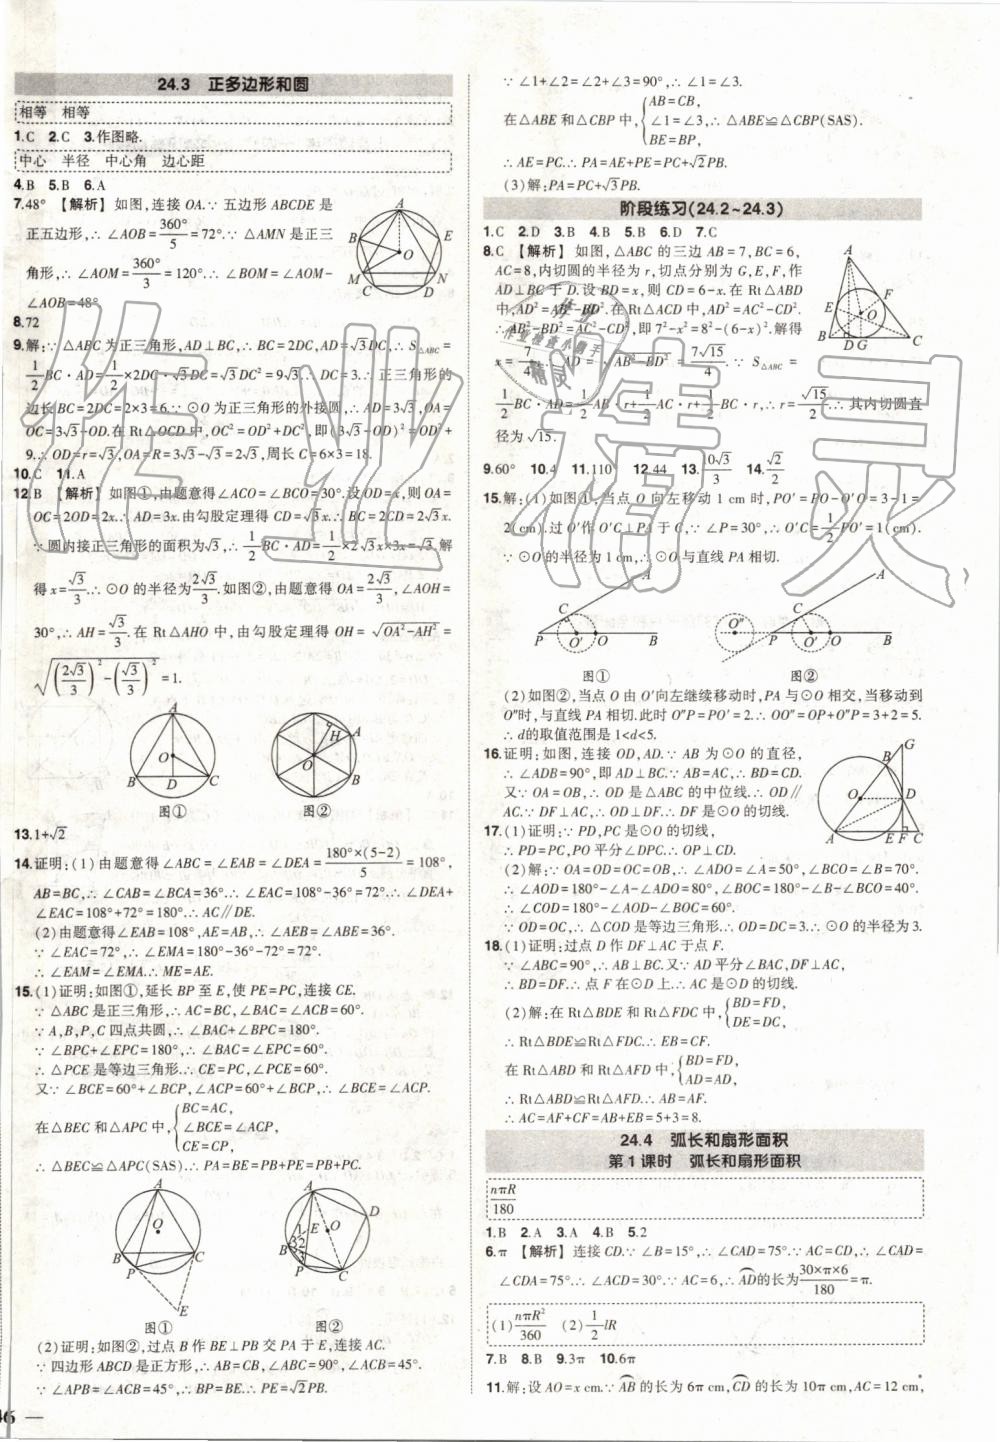 24.3 正多边形和圆
相等 相等
1.C 2.C 3.作图略.
中心 半径 中心角 边心距
4.B 5.B 6.A
7.48° 【解析】如图,连接OA.∵五边形ABCDE是
正五边形,∴∠AOB=360°/5=72°.∵△AMN是正三
角形,∴∠AOM=360°/3=120°.∴∠BOM=∠AOM-
∠AOB=48°.
8.72
9.解:∵△ABC为正三角形,AD⊥BC,∴BC=2DC,AD=√3DC.∴S△ABC=
1/2BC·AD=1/2×2DC·√3DC=√3DC²=9√3.∴DC=3.∴正三角形的
边长BC=2DC=2×3=6.∵⊙O为正三角形的外接圆,∴AD=3√3,OA=
OC=3√3-OD.在Rt△OCD中,OC²=OD²+DC²,即(3√3-OD)²=OD²+
9.∴OD=r=√3,OA=R=3√3-√3=2√3,周长C=6×3=18.
10.C 11.A
12.B 【解析】如图①,由题意得∠ACO=∠BCO=30°.设OD=x,则OA=
OC=2OD=2x.∴AD=3x.由勾股定理得CD=√3x.∴BC=2CD=2√3x.
∵圆内接正三角形的面积为√3,∴1/2BC·AD=1/2×2√3x×3x=√3,解
得x=√3/3.∴⊙O的半径为2√3/3.如图②,由题意得OA=2√3/3,∠AOH=
30°,∴AH=√3/3.在Rt△AHO中,由勾股定理得OH=√(OA²-AH²)=
√((2√3/3)²-(√3/3)²)=1.
图① 图②
13.1+√2
14.证明:(1)由题意得∠ABC=∠EAB=∠DEA=180°×(5-2)/5=108°,
AB=BC,∴∠CAB=∠BCA=36°.∴∠EAC=108°-36°=72°.∴∠DEA+
∠EAC=108°+72°=180°.∴AC∥DE.
(2)由题意得∠EAB=108°,AE=AB,∴∠AEB=∠ABE=36°.
∵∠EAC=72°,∴∠EMA=180°-36°-72°=72°.
∴∠EAM=∠EMA.∴ME=AE.
15.(1)证明:如图①,延长BP至E,使PE=PC,连接CE.
∵△ABC是正三角形,∴AC=BC,∠BAC=∠ACB=60°.
∵A,B,P,C四点共圆,∴∠BAC+∠BPC=180°.
∵∠BPC+∠EPC=180°,∴∠BAC=∠EPC=60°.
∴△PCE是等边三角形.∴CE=PC,∠PCE=60°.
又∵∠BCE=60°+∠BCP,∠ACP=60°+∠BCP,∴∠BCE=∠ACP.
在△BEC和△APC中,{BC=AC,
∠BCE=∠ACP,
CE=CP,
∴△BEC≌△APC(SAS).∴PA=BE=PB+PE=PB+PC.
图① 图②
(2)证明:如图②,过点B作BE⊥PB交PA于E,连接AC.
∵四边形ABCD是正方形,∴AB=CB,∠ABC=90°,∠ACB=45°.
∵∠APB=∠ACB=45°,∴BP=BE.∴PE=√2PB.
46
∵∠1+∠2=∠2+∠3=90°,∴∠1=∠3.
在△ABE和△CBP中,{AB=CB,
∠1=∠3,
BE=BP,
∴△ABE≌△CBP(SAS).
∴AE=PC.∴PA=AE+PE=PC+√2PB.
(3)解:PA=PC+√3PB.
阶段练习(24.2~24.3)
1.C 2.D 3.B 4.B 5.B 6.D 7.C
8.C 【解析】如图,△ABC的三边AB=7,BC=6,
AC=8,内切圆的半径为r,切点分别为G,E,F,作
AD⊥BC于D.设BD=x,则CD=6-x.在Rt△ABD
中,AD²=AB²-BD².在Rt△ACD中,AD²=AC²-CD².
∴AB²-BD²=AC²-CD²,即7²-x²=8²-(6-x)².解得
x=7/4.∴AD=√(AB²-BD²)=7√15/4.∵S△ABC=
1/2BC·AD=1/2AB·r+1/2AC·r+1/2BC·r,∴r=√15/2.∴其内切圆直
径为√15.
9.60° 10.4 11.110 12.44 13.10√3/3 14.√2/2
15.解:(1)如图①,当点O向左移动1 cm时,PO'=PO-O'O=3-1=
2(cm).过O'作O'C⊥PA于C,∵∠P=30°,∴O'C=1/2PO'=1(cm).
∵⊙O的半径为1 cm,∴⊙O与直线PA相切.
图① 图②
(2)如图②,当点O由O'向左继续移动时,PA与⊙O相交,当移动到
O″时,与直线PA相切.此时O″P=PO'=2.∴OO″=OP+O″P=3+2=5.
∴d的取值范围是1<d<5.
16.证明:如图,连接OD,AD.∵AB为⊙O的直径,
∴∠ADB=90°,即AD⊥BC.∵AB=AC,∴BD=CD.
又∵OA=OB,∴OD是△ABC的中位线.∴OD∥
AC.∵DF⊥AC,∴OD⊥DF.∴DF是⊙O的切线.
17.(1)证明:∵PD,PC是⊙O的切线,
∴PD=PC,PO平分∠DPC.∴OP⊥CD.
(2)解:∵OA=OD=OC=OB,∴∠ADO=∠A=50°,∠BCO=∠B=70°.
∴∠AOD=180°-∠A-∠ADO=80°,∠BOC=180°-∠B-∠BCO=40°.
∴∠COD=180°-∠AOD-∠BOC=60°.
∵OD=OC,∴△COD是等边三角形.∴OD=DC=3.∴⊙O的半径为3.
18.(1)证明:过点D作DF⊥AC于点F.
∵∠ABC=90°,∴AB⊥BC.又∵AD平分∠BAC,DF⊥AC,
∴BD=DF.∴点F在⊙D上.∴AC是⊙D的切线.
(2)解:在Rt△BDE和Rt△FDC中,{BD=FD,
DE=DC,
∴Rt△BDE≌Rt△FDC.∴EB=CF.
在Rt△ABD和Rt△AFD中,{BD=FD,
AD=AD,
∴Rt△ABD≌Rt△AFD.∴AB=AF.
∴AC=AF+CF=AB+EB=5+3=8.
24.4 弧长和扇形面积
第1课时 弧长和扇形面积
nπR/180
1.B 2.A 3.A 4.B 5.2
6.π 【解析】连接CD.∵∠B=15°,∴∠CAD=75°.∵AC=CD,∴∠CAD=
∠CDA=75°.∴∠ACD=30°.∵AC=6,∴AD的长为30×π×6/180=π.
(1)nπR²/360 (2)1/2lR
7.B 8.B 9.3π 10.6π
11.解:设AO=x cm.∵AB的长为6π cm,CD的长为10π cm,AC=12 cm,